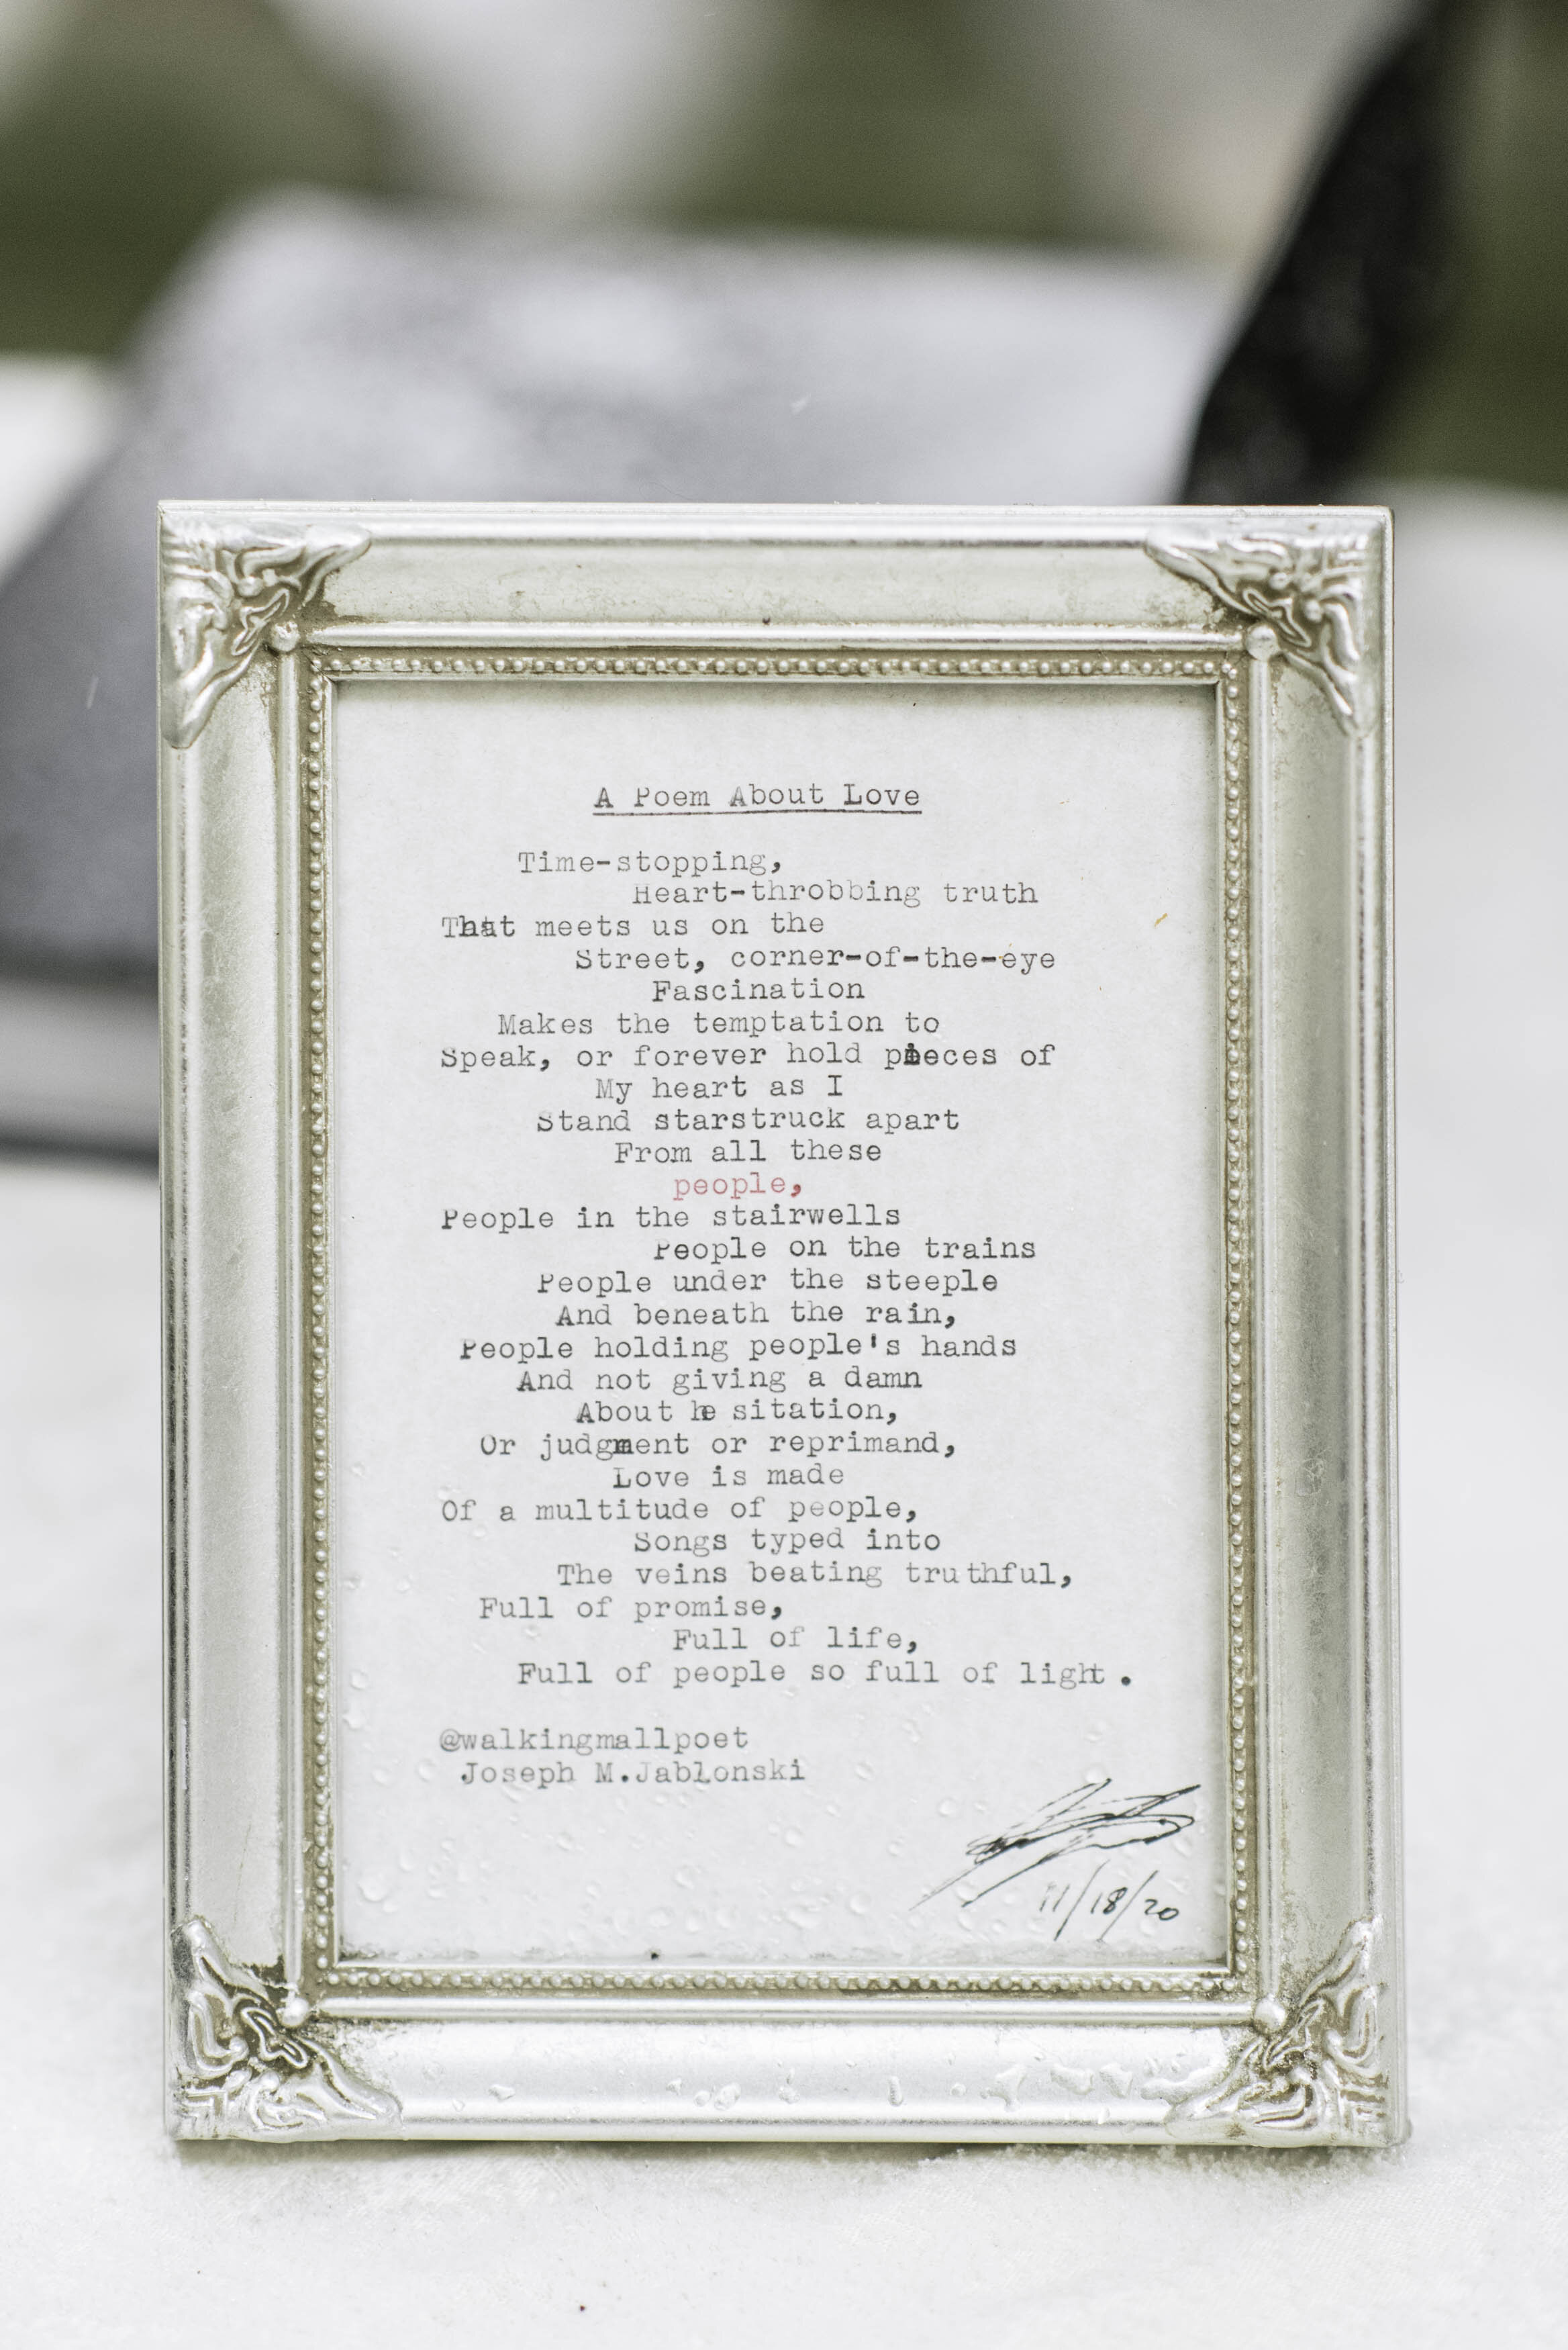 A Poem About Love
Time-stopping,
Heart-throbbing truth
That meets us on the
Street, corner-of-the-eye
Fascination
Makes the temptation to
Speak, or forever hold pieces of
My heart as I
Stand starstruck apart
From all these
people,
People in the stairwells
People on the trains
People under the steeple
And beneath the rain,
People holding people's hands
And not giving a damn
About he sitation,
Or judgment or reprimand,
Love is made
Of a multitude of people,
Songs typed into
The veins beating truthful,
Full of promise,
Full of life,
Full of people so full of light.
@walkingmallpoet
Joseph M.Jablonski
11/18/20